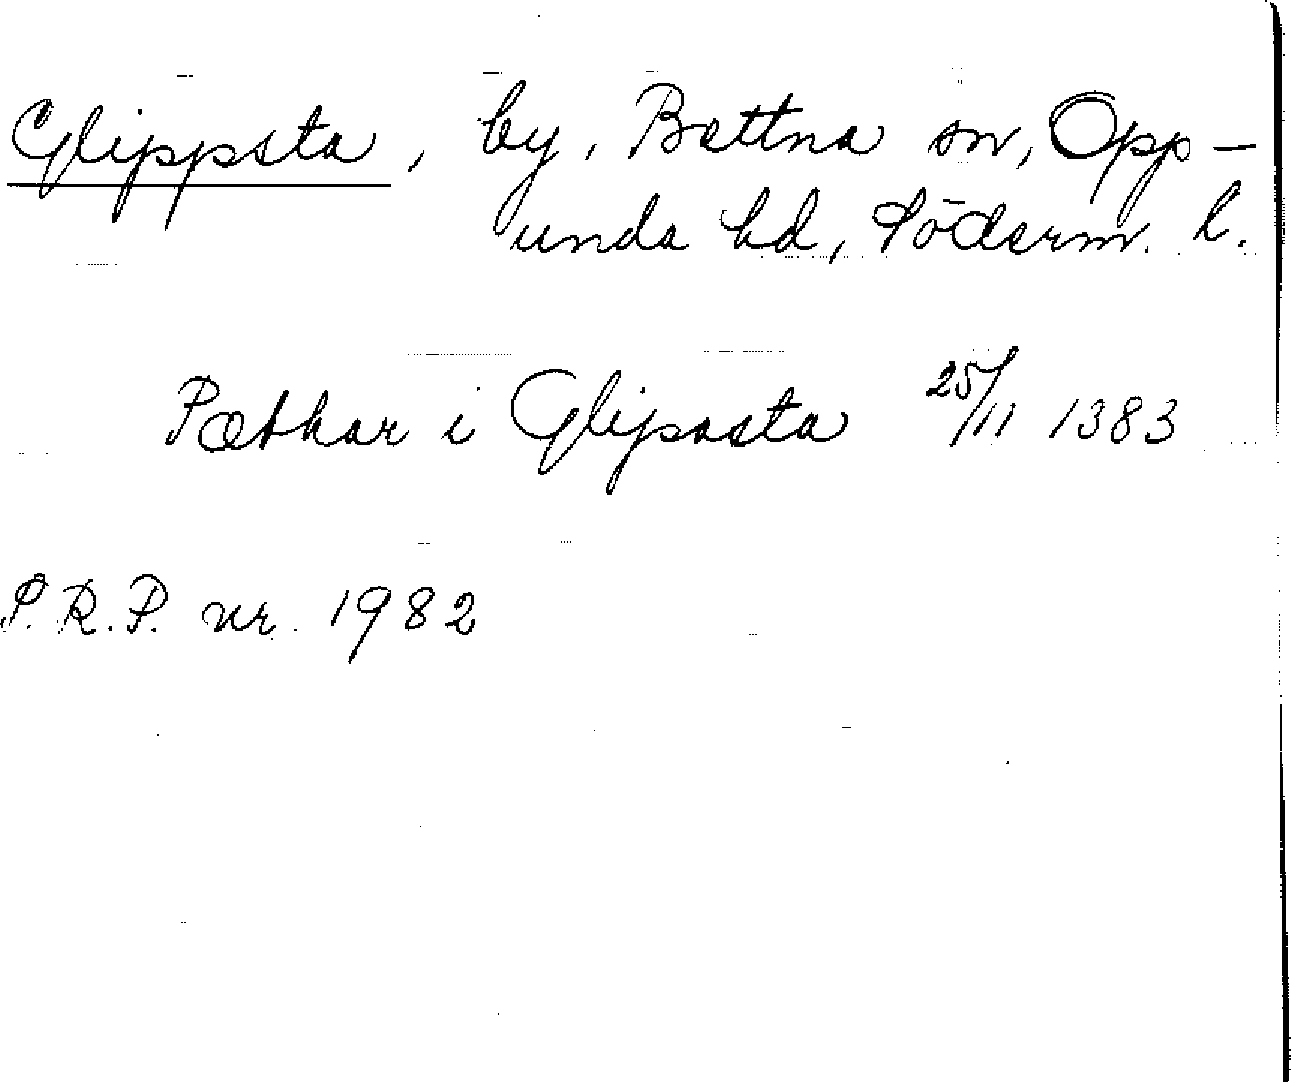 Glippsta, by, Bettna sn, Opp-
unda hd, Söderm. l.
Pæthar i Glipsasta 25/11 1383
S.R.P. nr. 1982